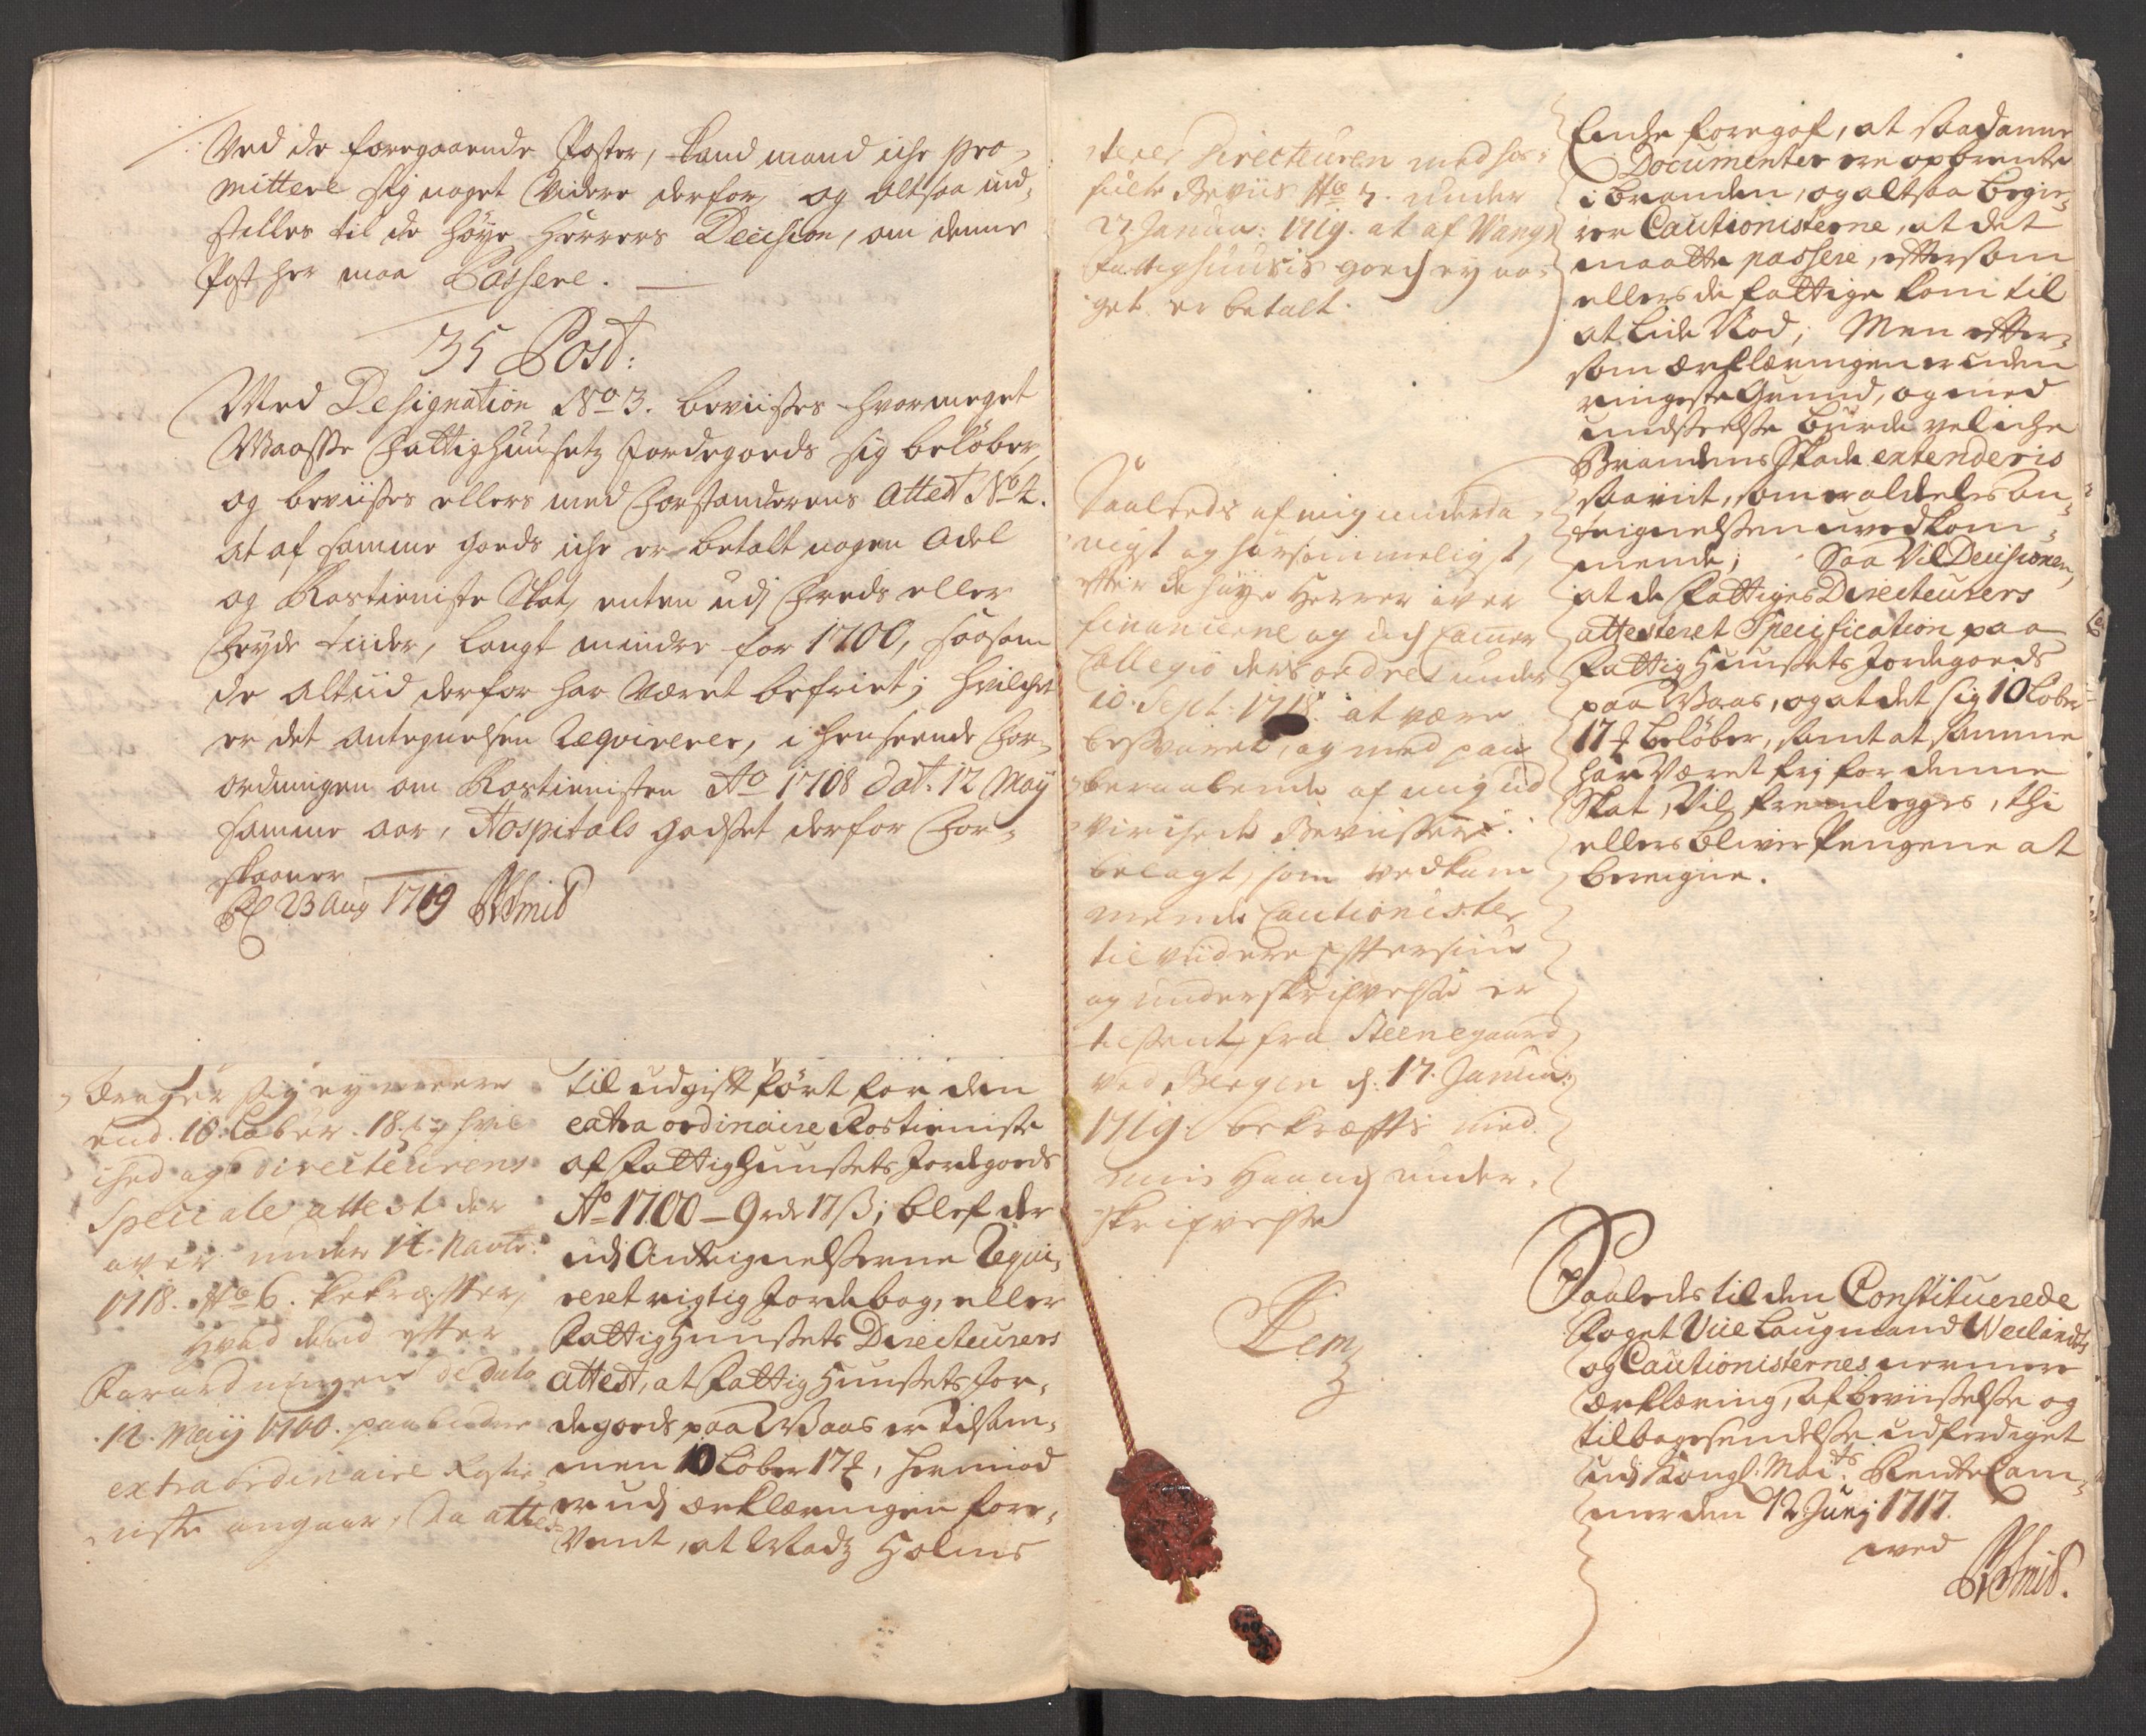 Ved de foregaaende Poster, kand mand iche pro-
mittere sig noget Videre derfor, og altsaa ind-
stilles til de høye Herrers Decision, om denne
Post her maa Passere.
35 Post:
Med Designation No 3. beviises hvormeget
Waasse Fattighuusetz Jordegoeds sig beløber,
og beviises ellers med Forstanderens Attest No 2.
at af samme goeds iche er betalt nogen Adel
og Rostieniste Skat, enten udj Freds eller
Feyde tiider, langt mindre for 1700, saasom
de altiid derfor har Været befriet; hvilchet
er det Antegnelsen Reqvirerer, i henseende For-
ordningen om Rostienisten Ao 1708 dat. 12 May
samme aar, Hospitals godset derfor For-
skaaner
23 Aug 1719
drager sig ey meere
end. 10. Løber. 18. hvil
ched og directeurens
Speciale attest der
over under 14. Novbr:
1718. No 6. bekræfter,
Hvad dend efter
Forordningen de dato
12. Maij 1700. paabudne
extraordinaire Rostie-
niste angaar, Saa attes-
til udgift ført for den
extra ordinaire Rostieniste
af Fattighuusets Jordegoeds
Ao 1700 - 9 rdr 17 ß; blef der
udj Antegnelserne Requi-
reret rigtig Jordebog, eller
Fattighuusets Directeurers
attest, at Fattig Huusets Jor-
degoeds paa Waas er tilsam-
men 10 Løber 17, hermod
er udj erklæringen fore-
Vent, at Madz Holms
terer Directeuren med hos-
fulte Beviis No 7. under
27 Janua: 1719. at af Wangs
Fattighuusis goeds ey no-
get er betalt.
Saaledes af mig underda-
nigst og hørsommeligst,
efter de høye Herrer over
Financierne og udj Camer
Collegio ders ordre under
10. Sept. 1718. at være
besvaret, og med paa
beraabende af mig ud
virchede Beviiser
belagt, som vedkom
mende Cautionister
til viidere Eftersiun
og underskrifvelse er
tilsent, fra Steenegaard
ved Bergen d. 17. Janua:
1719. bekræftis med
min Haand under-
skrifvelse
Lem
Enche foregaf, at saadanne
Documenter ere opbrendte
i branden, og altsaa begie-
rer Cautionisterne, at det
maatte passere, eftersom
ellers de fattige kom til
at lide Nød; Men efter-
som erklæringen er uden
ringeste Grund, og med
undseelse burde vel iche
Brandens Skade extenderis
saavit, som er aldeles An-
teignelsen uvedkom-
mende; Saa Vil Decisionen,
at de Fattiges Directeurers
attesteret Specification paa
Fattig Huusets Jordegoeds
paa Waas, og at det sig 10 Løber
17 beløber, samt at samme
har Været frj for denne
Skat, Vil fremlegges, thi
ellers bliver Pengene at
bereigne.
Saaledes til den Constituerede
Foget Vice Laugmand Weilandts
og Cautionisternes nermere
erklæring, afbeviiselse og
tilbagesendelse udferdiget
udj Kongl. Maits. Rente Cam-
mer den 12 Junj 1717.
ved